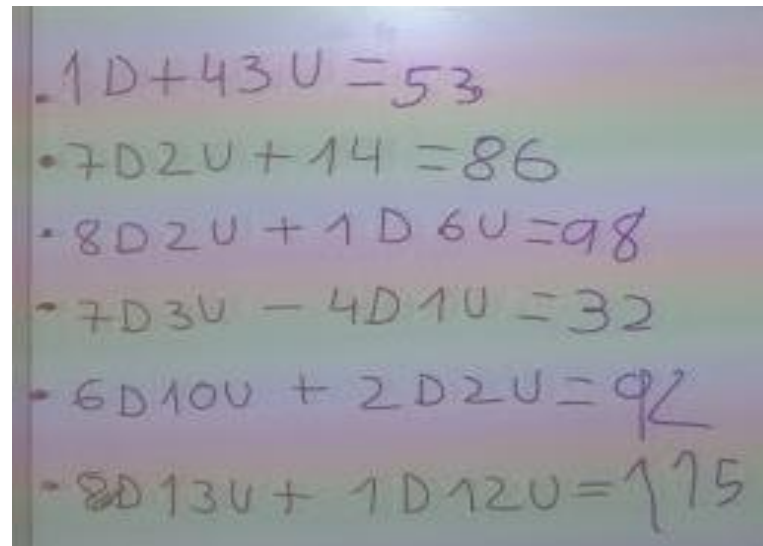 . 1D+43U=53
• 7D2U+14=86
• 8D2U+1D6U=98
- 7D3U-4D1U=32
- 6D10U+2D2U=92
- 8D13U+1D12U=115